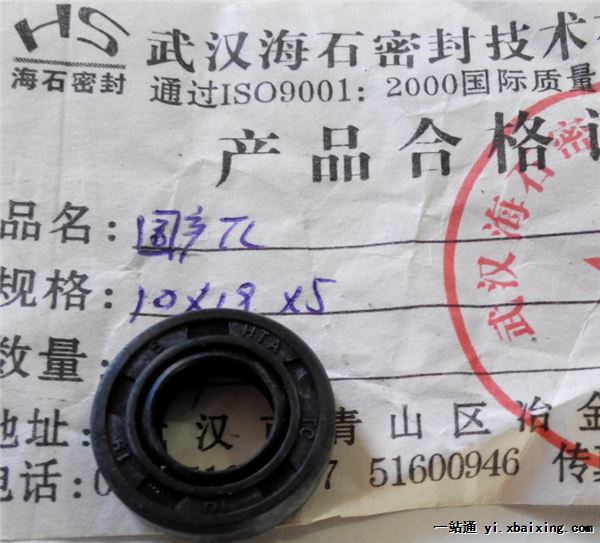 HS
海石密封
武汉海石密封技术
通过ISO9001：2000国际质量
产品合格
品名：国产TC
规格：10×19×5
数量：
地址：武汉市青山区冶金
电话：0 7 51600946 传真
武汉海石密
HTA
TC
10
19
一站通 yi.xbaixing.com